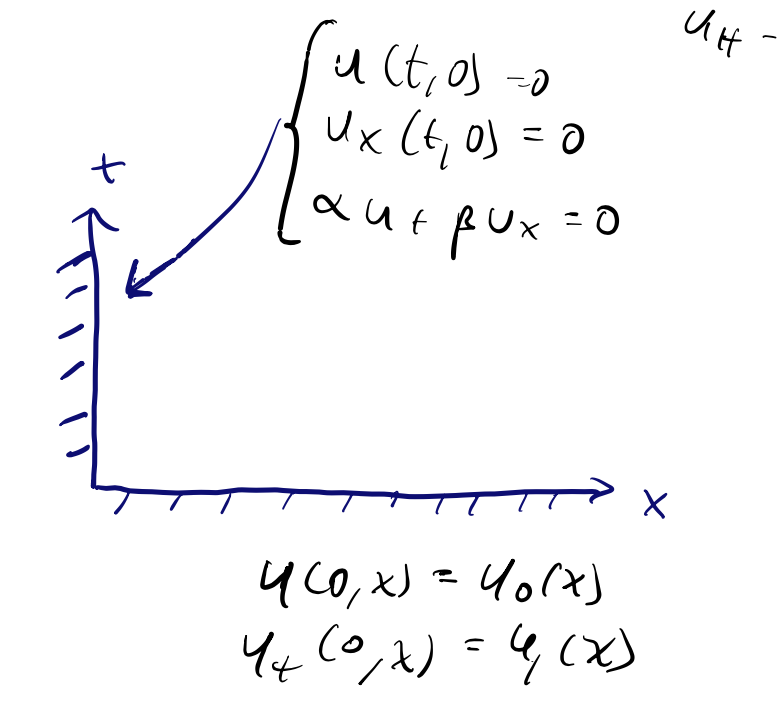 u_tt -
u(t,0) = 0
u_x(t,0) = 0
αu + βu_x = 0
t
x
u(0,x) = u_0(x)
u_t(0,x) = u_1(x)